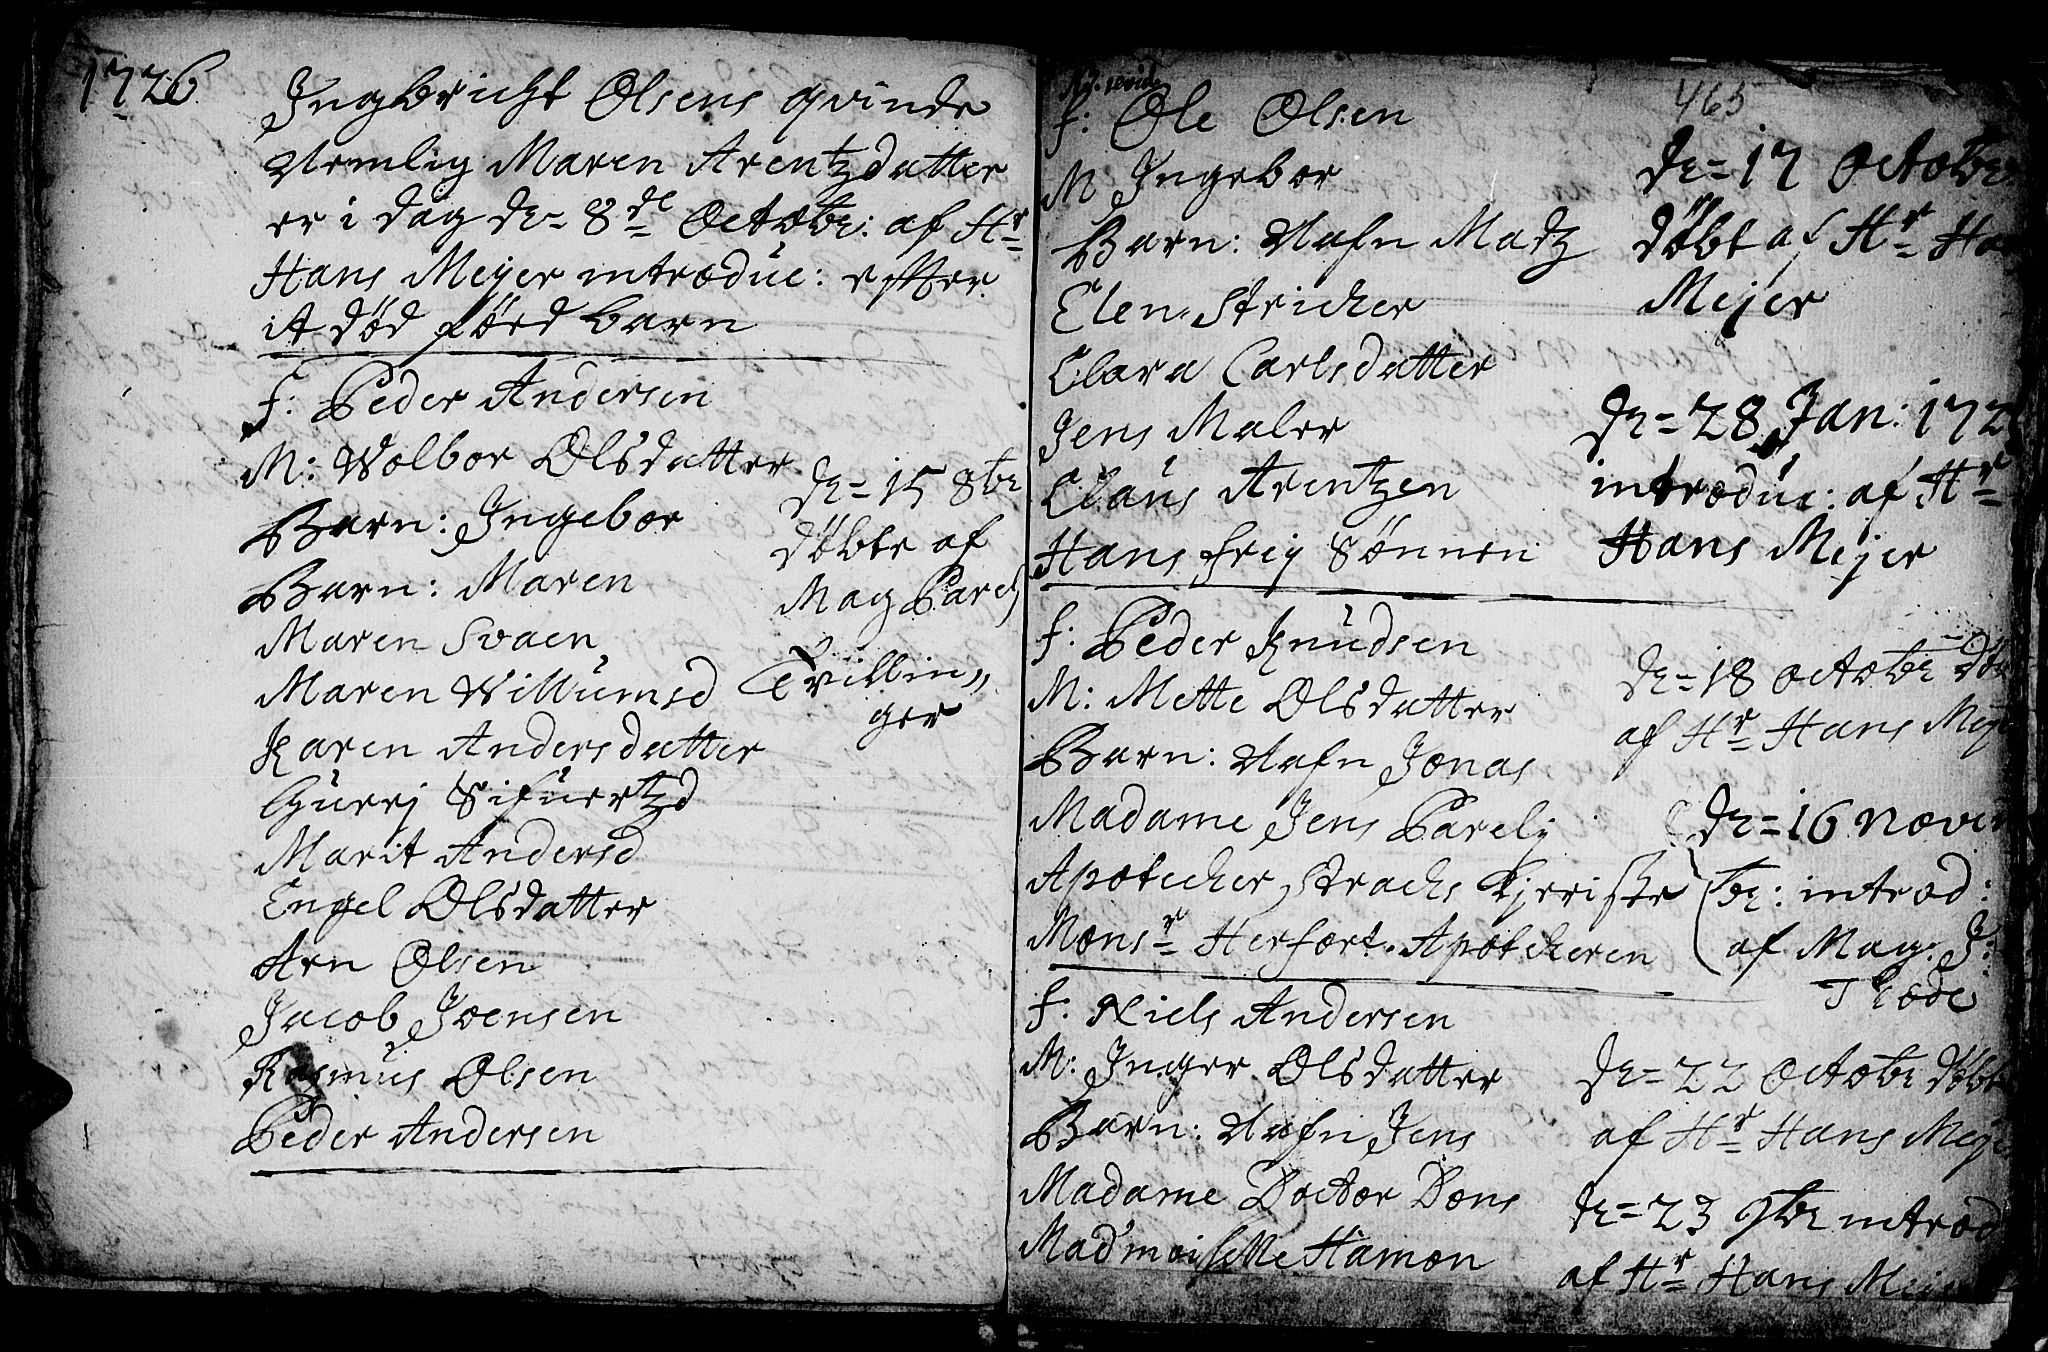 1726
Ingbricht Olsens qvinde
Nemlig Maren Arentzdatter
er i dag dn 8de Octobr: af Hr
Hans Mejer introduc: efter
it død född barn
F: Peder Andersen
M: Wolbor Olsdatter
Barn: Ingebor
Barn: Maren
Maren Svaen
Maren Willumsd
Karen Andersdatter
Gurej Sifuertzd
Marit Andersd
Engel Olsdatter
Arn Olsen
Jacob Joensen
Rasmus Olsen
Peder Andersen
dn 15 8br
döbte af
Mag Parelj
Tvillin„
ger
465
F: Ole Olsen
M Ingebor
Barn: Nafn Madz
Elen Stricher
Clara Carlsdatter
Jens Maler
Claus Arentzen
Hans frij Sönnen
dn 17 Octobr
döbt af Hr
Mejer
dn 28 Jan:
introduc: af Hr
Hans Mejer
F: Peder Knudsen
M: Mette Olsdatter
Barn: Nafn Jonas
Madame Jens Parelj
Apotecher Strachs Kjeriste
Monsr Herfort Apotcheren
dn 18 Octobr
af Hr Hans
dn 16 Novem
br: introd:
af Mag: J:
Thode
F: Niels Andersen
M: Inger Olsdatter
Barn: Nafn Jens
Madame Doctor Dons
Mad'moiselle Hamon
dn 22 Octobr döbt
af Hr Hans Meje
dn 23 9br introd
af Hr Hans Mejer